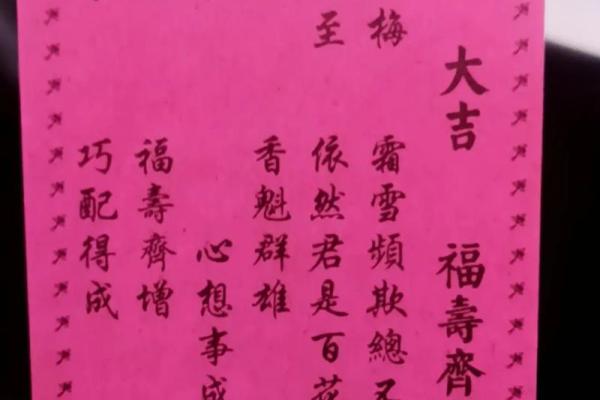 大吉 福壽齊
梅 霜雪頻欺總
至 依然君是百花
香魁群雄
心想事成
福壽齊增
巧配得成